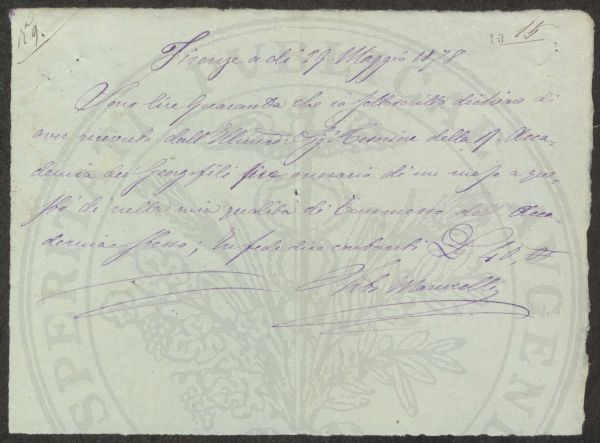 N 9.
13 15
Firenze a dì 29 Maggio 1878
Sono lire Quaranta che io sottoscritto dichiaro di
aver ricevuto dall' Sig. della R. Acca-
demia dei Georgofili onorario di un mese a que-
sto dì nella mia qualità di Commesso dell' Acca-
demia stessa; In fede dico contanti £ 40,